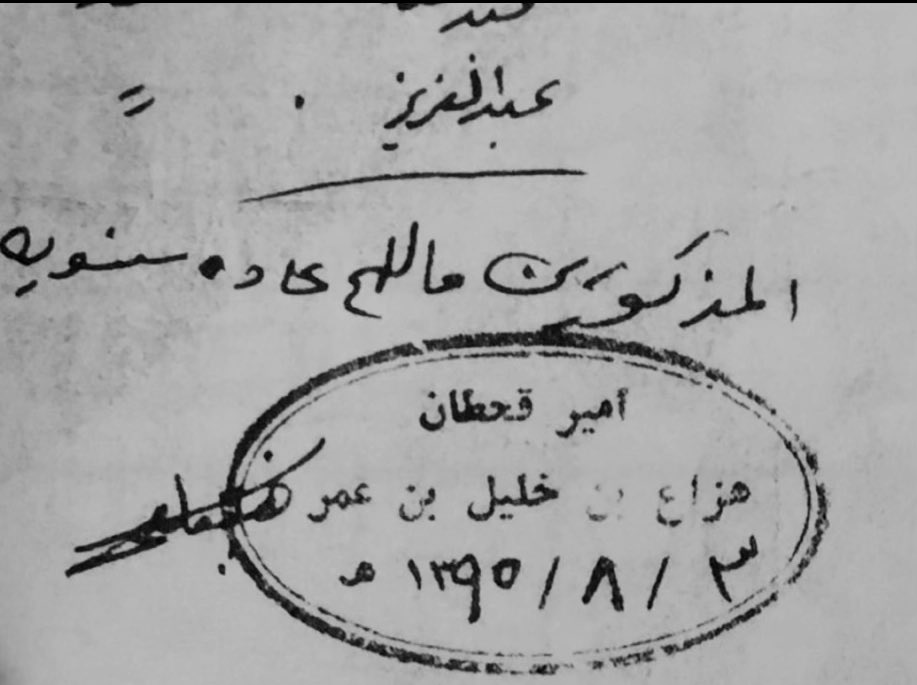 عبدالعزيز . =
المذكورين ماللهم عاده سنويه
أمير قحطان
هزاع بن خليل بن عمر
٣ / ٨ / ١٣٩٥ هـ